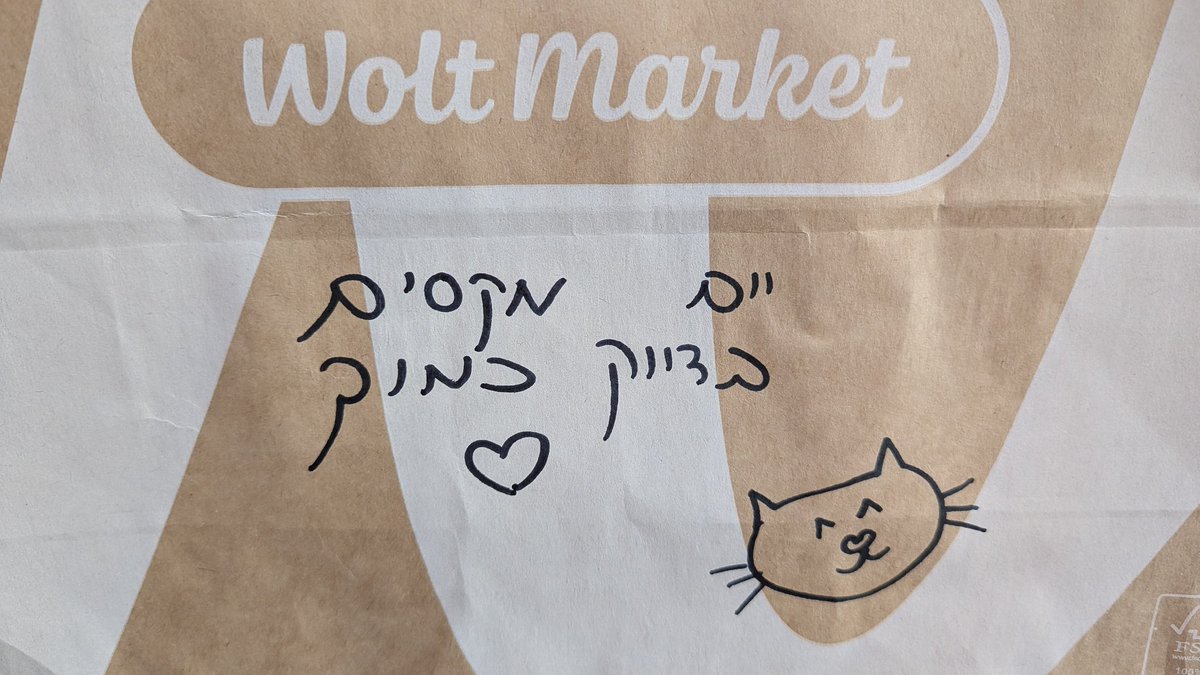 Wolt Market
יום מקסים
בדיוק כמוך